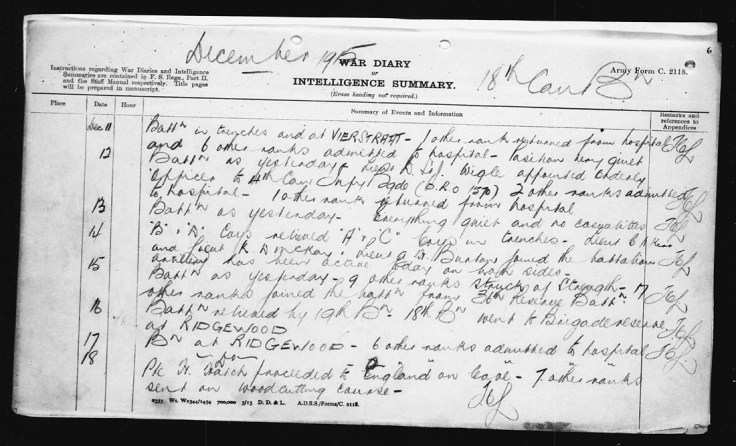 December 1915
6
Instructions regarding War Diaries and Intelligence
Summaries are contained in F. S. Regs., Part II.
and the Staff Manual respectively. Title pages
will be prepared in manuscript.
WAR DIARY
or
INTELLIGENCE SUMMARY.
(Erase heading not required.)
18th Can Bn
Army Form C. 2118.
Place Date Hour Summary of Events and Information Remarks and references to Appendices
Dec 11 Battn in trenches and at VIERSTRAAT - 1 other rank returned from hospital
and 6 other ranks admitted to hospital - Position very quiet
12 Battn as yesterday - Lieut D. Wigle appointed Orderly
Officer to 4th Can Infy Bgde (B.R.O 1570) 2 other ranks admitted
to hospital - 1 other rank returned from hospital
13 Battn as yesterday - Everything quiet and no casualties
14 "B" & "D" Coys relieved "A" & "C" Coys in trenches - Lieut
and Lieut R. D McKay, Lieut G. Bunton joined the battalion
artillery has been active today on both sides -
15 Battn as yesterday - 9 other ranks struck of strength - 17
other ranks joined the battn from 36th Reserve Battn.
16 Battn relieved by 19th Bn 18th Bn went to Brigade reserve
at RIDGEWOOD
17 Bn at RIDGEWOOD - 6 other ranks admitted to hospital
18 - do -
Pte H. Watch proceeded to England on leave - 7 other ranks
sent on woodcutting course -
2353 Wt. W2544/1454 700,000 5/15 D. D. & L. A.D.S.S./Forms/C. 2118.